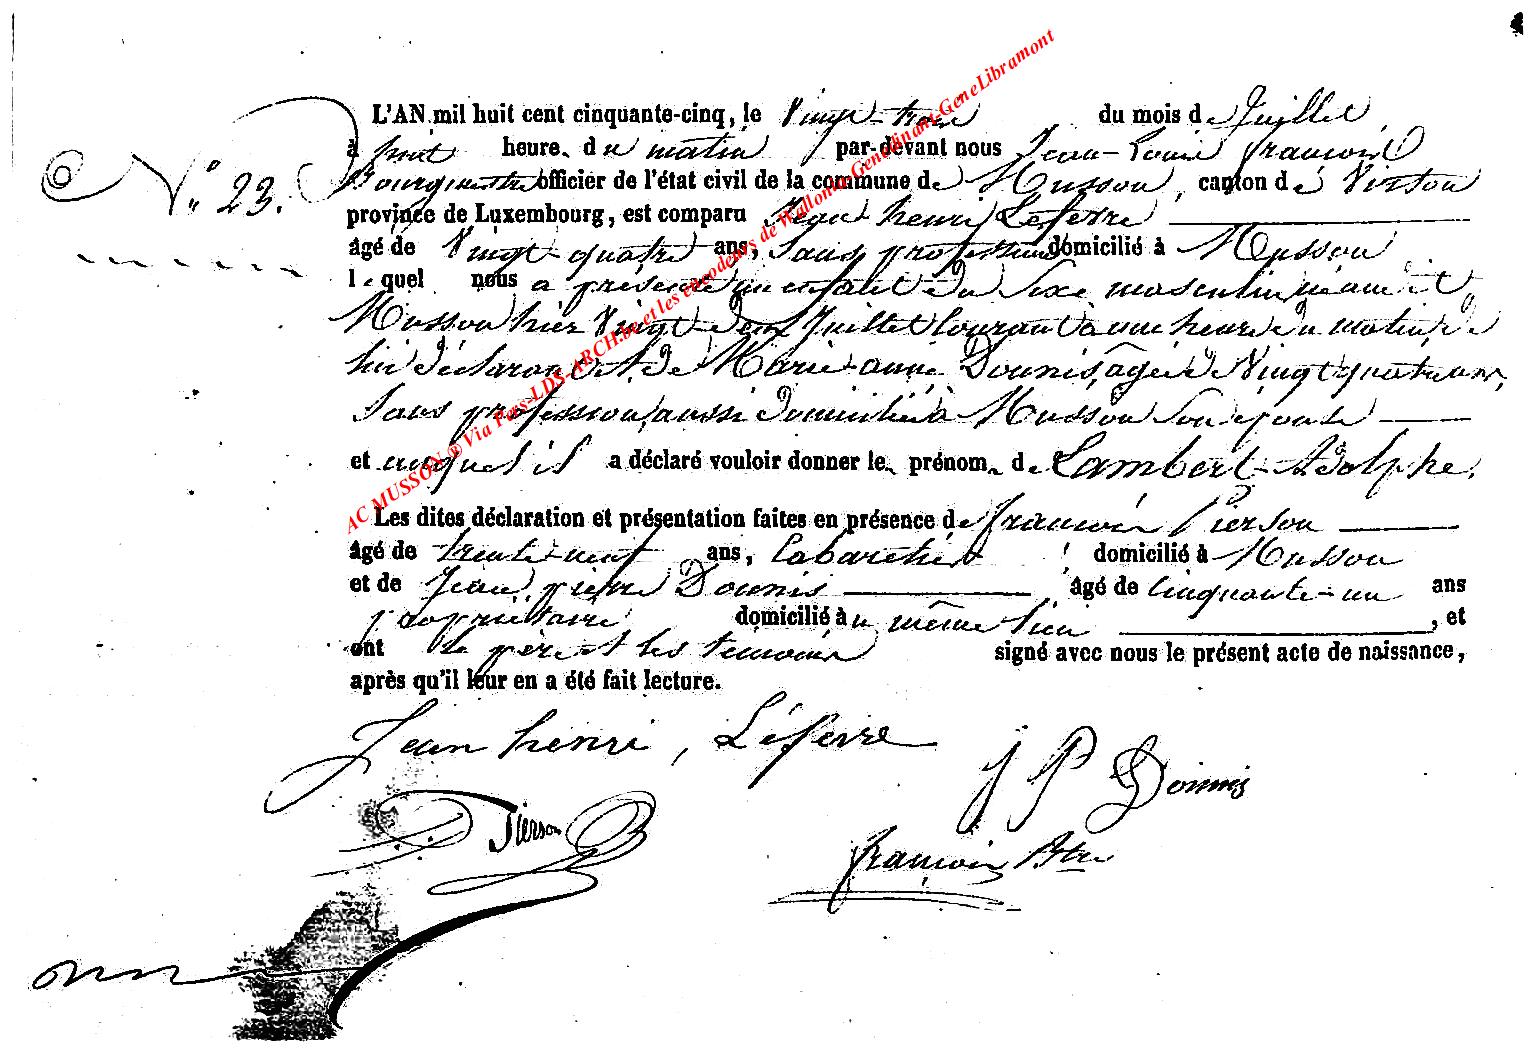 L'AN mil huit cent cinquante-cinq, le Vingt-trois du mois de Juillet
N° 23. à huit heure du matin par-devant nous Jean-Louis François
Bourgmestre officier de l'état civil de la commune de Musson, canton de Virton
province de Luxembourg, est comparu Jean henri Lefevre
âgé de Vingt-quatre ans, Sans profession domicilié à Musson
lequel nous a présenté un enfant du Sexe masculin, né audit
Musson hier Vingt-deux Juillet Courant à une heure du matin, de
lui déclarant et de Marie-anne Dounis, âgée de Vingt quatre ans,
Sans profession, aussi domiciliée à Musson Son épouse
et auquel il a déclaré vouloir donner le prénom de Lambert-Adolphe.
Les dites déclaration et présentation faites en présence de françois Pierson
âgé de trente-neuf ans, Cabaretier domicilié à Musson
et de Jean pierre Dounis âgé de Cinquante-un ans
propriétaire domicilié au même lieu, et
ont le père et les témoins signé avec nous le présent acte de naissance,
après qu'il leur en a été fait lecture.
Jean henri, Léfevre
J P Dounis
Pierson
françois Btre
AC MUSSON @ Via Pers-LDS-ARCH.be et les encodeurs de Wallonia-Genedinant-GeneLibramont